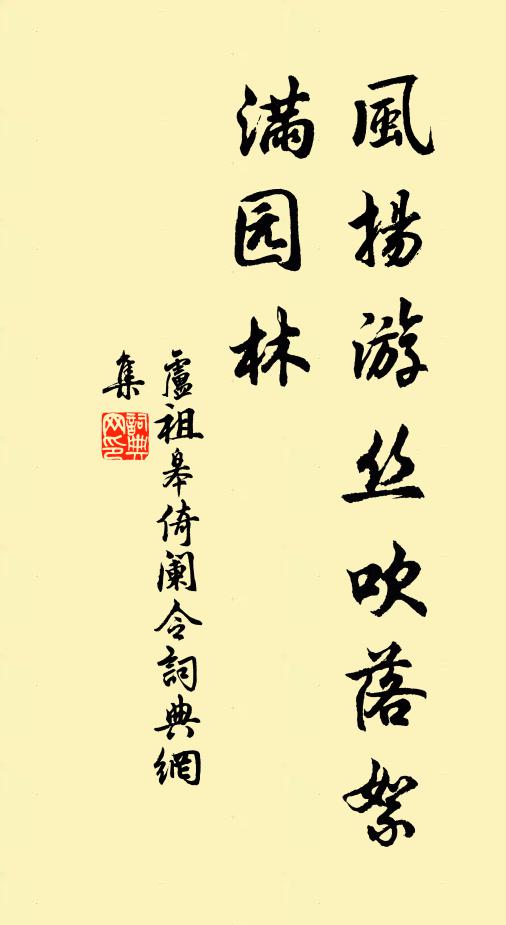 風揚游丝吹落絮
满园林
盧祖皋倚阑令詞典網
集
詞典
网印